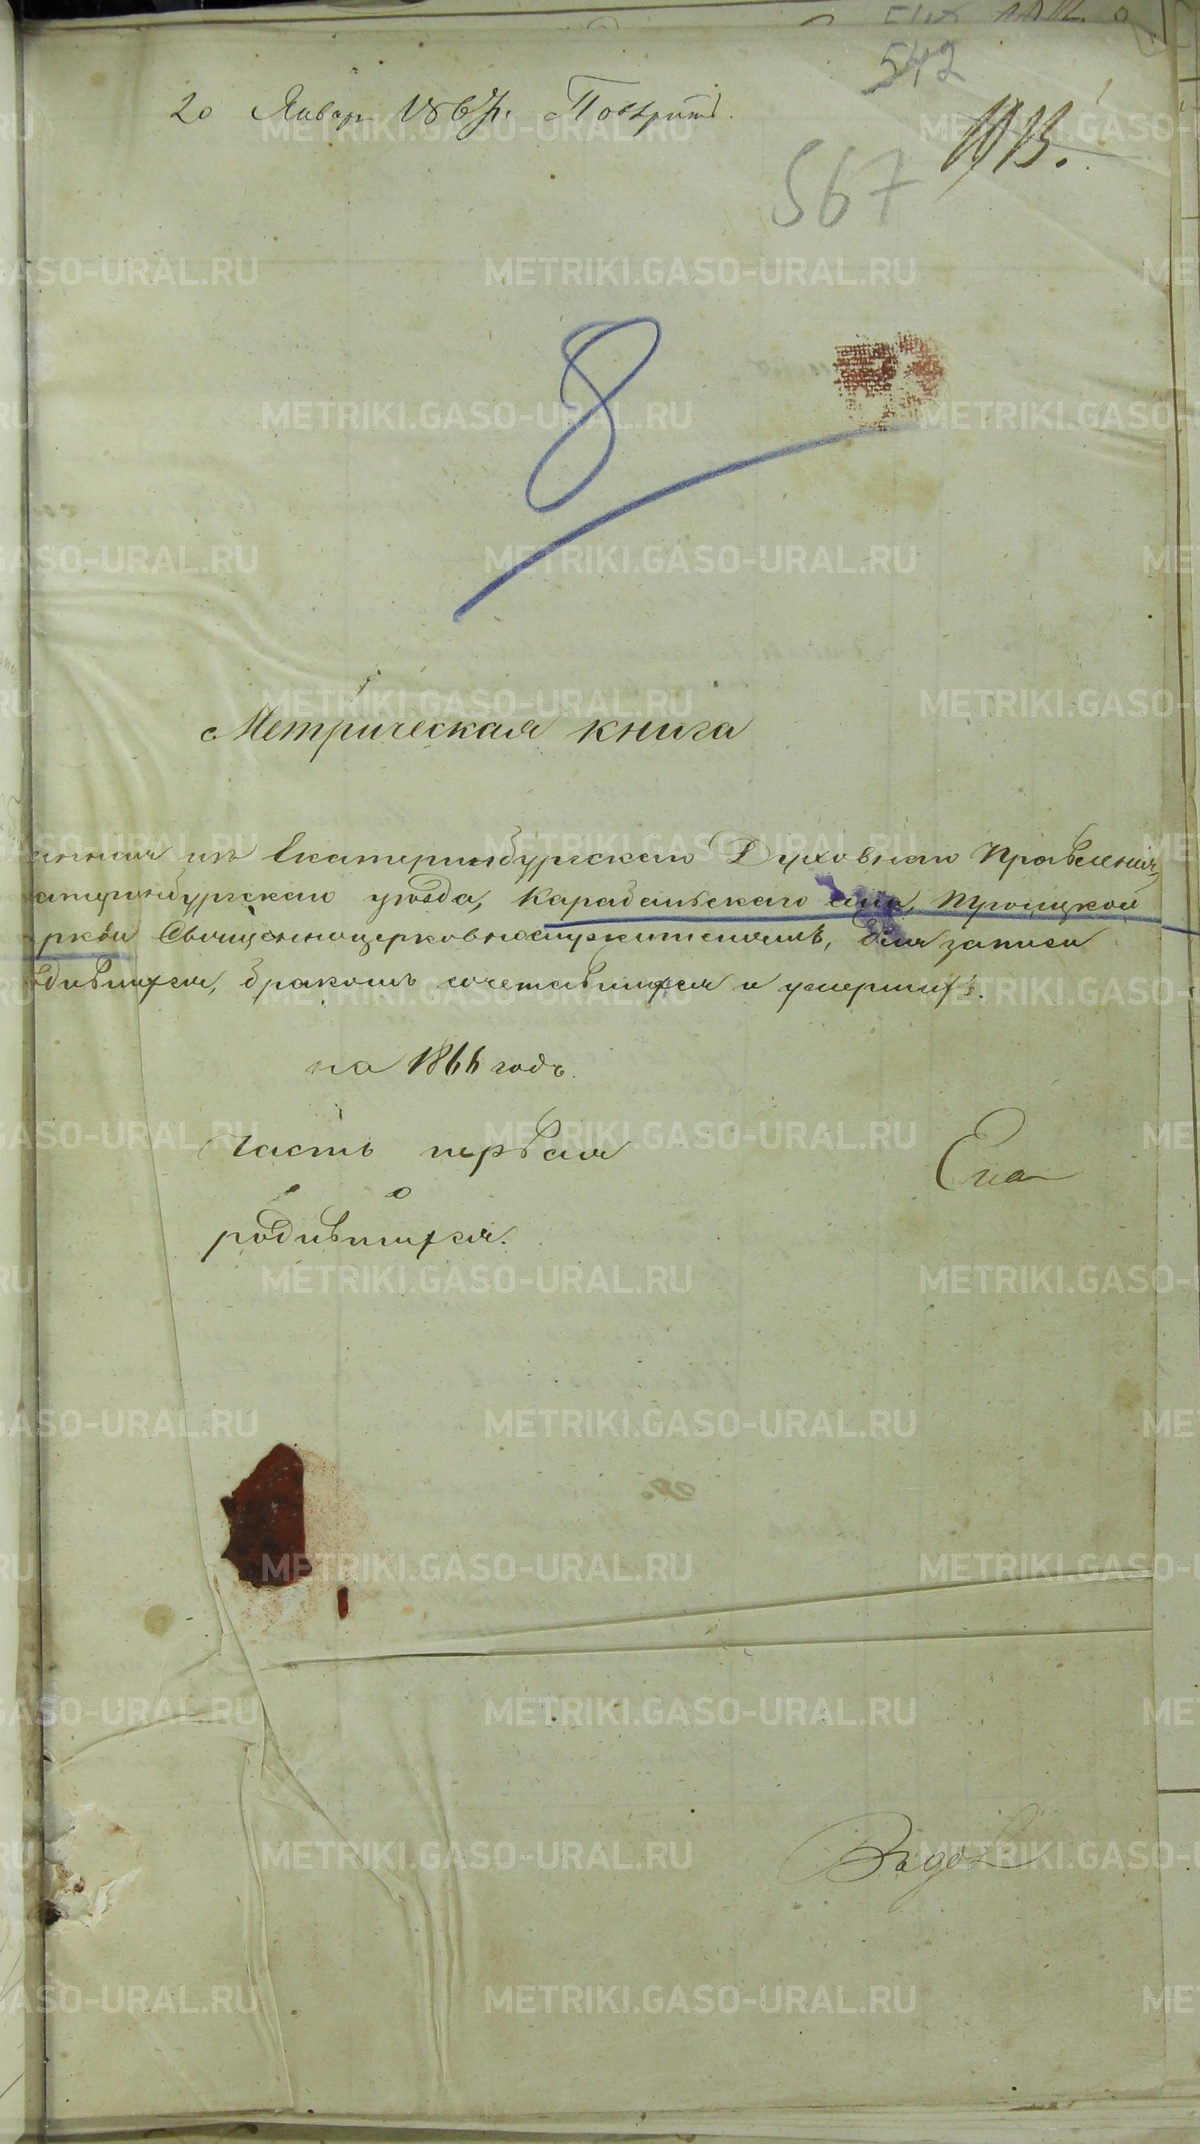 542
20 Январ 1867. Повѣрить.
1013.
567
8
Метрическая книга
анная изъ Екатеринбургскаго Духовнаго Правленія,
атеринбургскаго уѣзда, Карабольскаго села, Троицкой
ркви Священноцерковнослужителямъ, для записи
дившихся, бракомъ сочетавшихся и умершихъ.
на 1866 годъ.
часть первая
о
родившихся.
METRIKI.GASO-URAL.RU